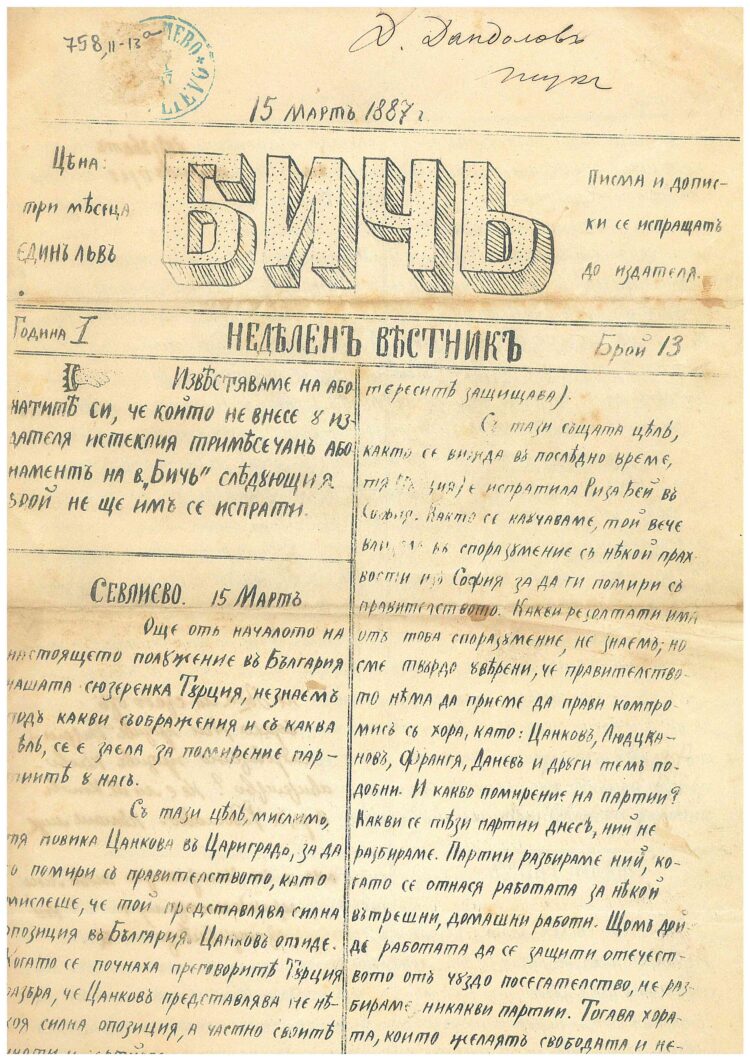 758, II-13а
Д. Дандоловъ
15 Мартъ 1887 г.
Цѣна:
три мѣсеца
единъ левъ
БИЧЬ
Писма и допис-
ки се испращатъ
до издателя.
Година I
НЕДѢЛЕНЪ ВѢСТНИКЪ
Брой 13
Извѣстяваме на або
натитѣ си, че който не внесе у из-
дателя истеклия тримѣсечанъ або
наментъ на в. „Бичь" слѣдующия
брой не ще имъ се испрати.
Севлиево. 15 Мартъ
Още отъ началото на
настоящето положение въ България
нашата сюзеренка Турция, незнаемъ
подъ какви съображения и съ каква
ѣль, се е заела за помирение пар-
тиитѣ у насъ.
Съ тази цѣль, мислимо,
тя повика Цанкова въ Цариградъ, за да
го помири съ правителството, като
мислеше, че той представлява силна
опозиция въ България. Цанковъ отиде.
Когато се почнаха преговоритѣ Турция
разбра, че Цанковъ представлява не нѣ-
коя силна опозиция, а частно своитѣ
тереситѣ защищава).
Съ тази същата цѣль,
както се вижда въ послѣдно време,
тя е испратила Риза Бей въ
София. Както се научаваме, той вече
въ споразумение съ нѣкой
изъ София за да ги помири съ
правителството. Какви резолтати има
отъ това споразумение, не знаемъ; но
сме твърдо увѣрени, че правителство-
то нѣма да приеме да прави компро-
мисъ съ хора, като: Цанковъ, Людцка-
новъ, Франга, Даневъ и други тем по-
добни. И какво помирение на партии?
Какви се тѣзи партии днесь, ний не
разбираме. Партии разбираме ний, ко-
гато се отнася работата за нѣкой
вътрешни, домашни работи. Щомъ дой
де работата да се защити отечест-
вото отъ чуздо посегателство, не раз-
бираме никакви партии. Тогава хора-
та, които желаятъ свободата и не-